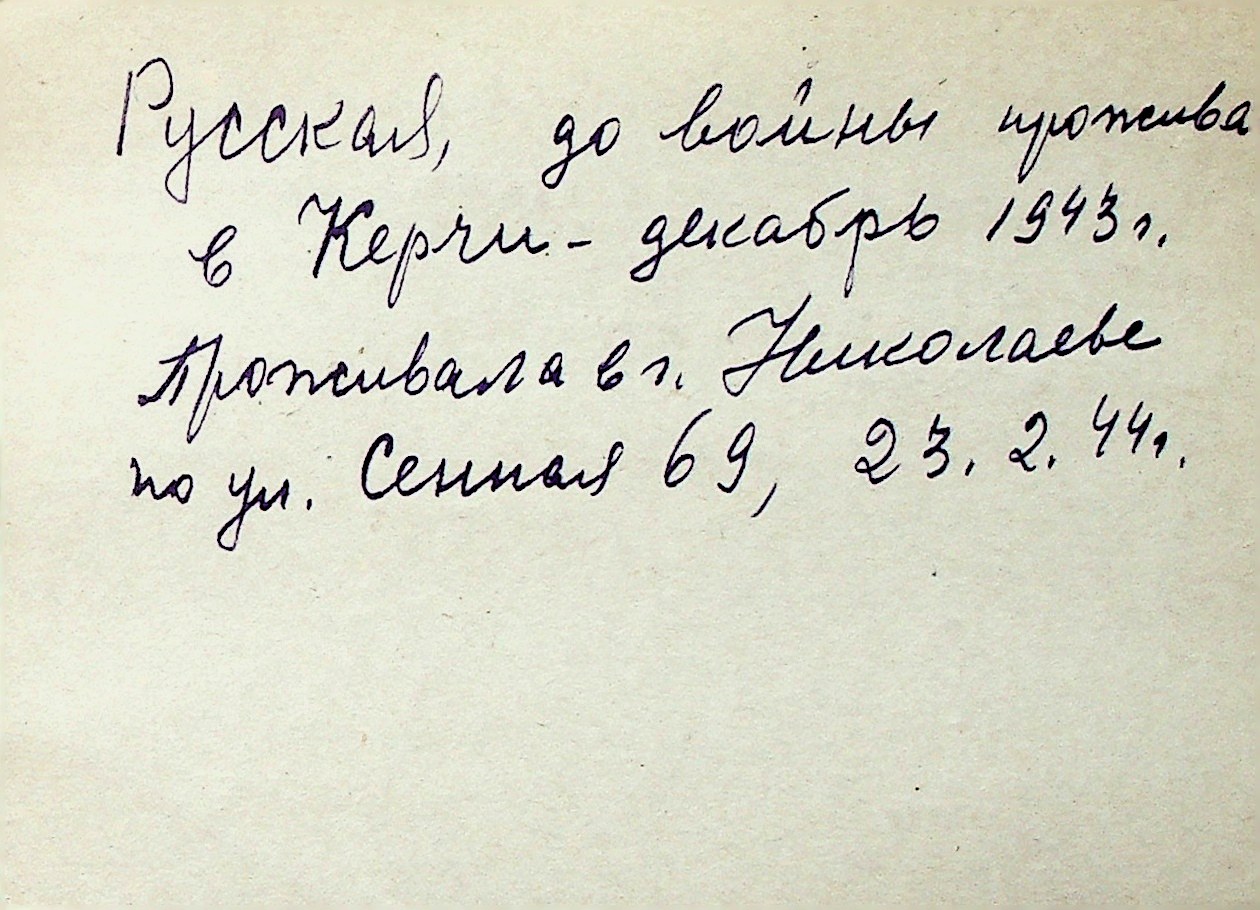 Русская, до войны прожива
в Керчи - декабрь 1943 г.
Проживала в г. Николаеве
по ул. Сенная 69, 23. 2. 44 г.